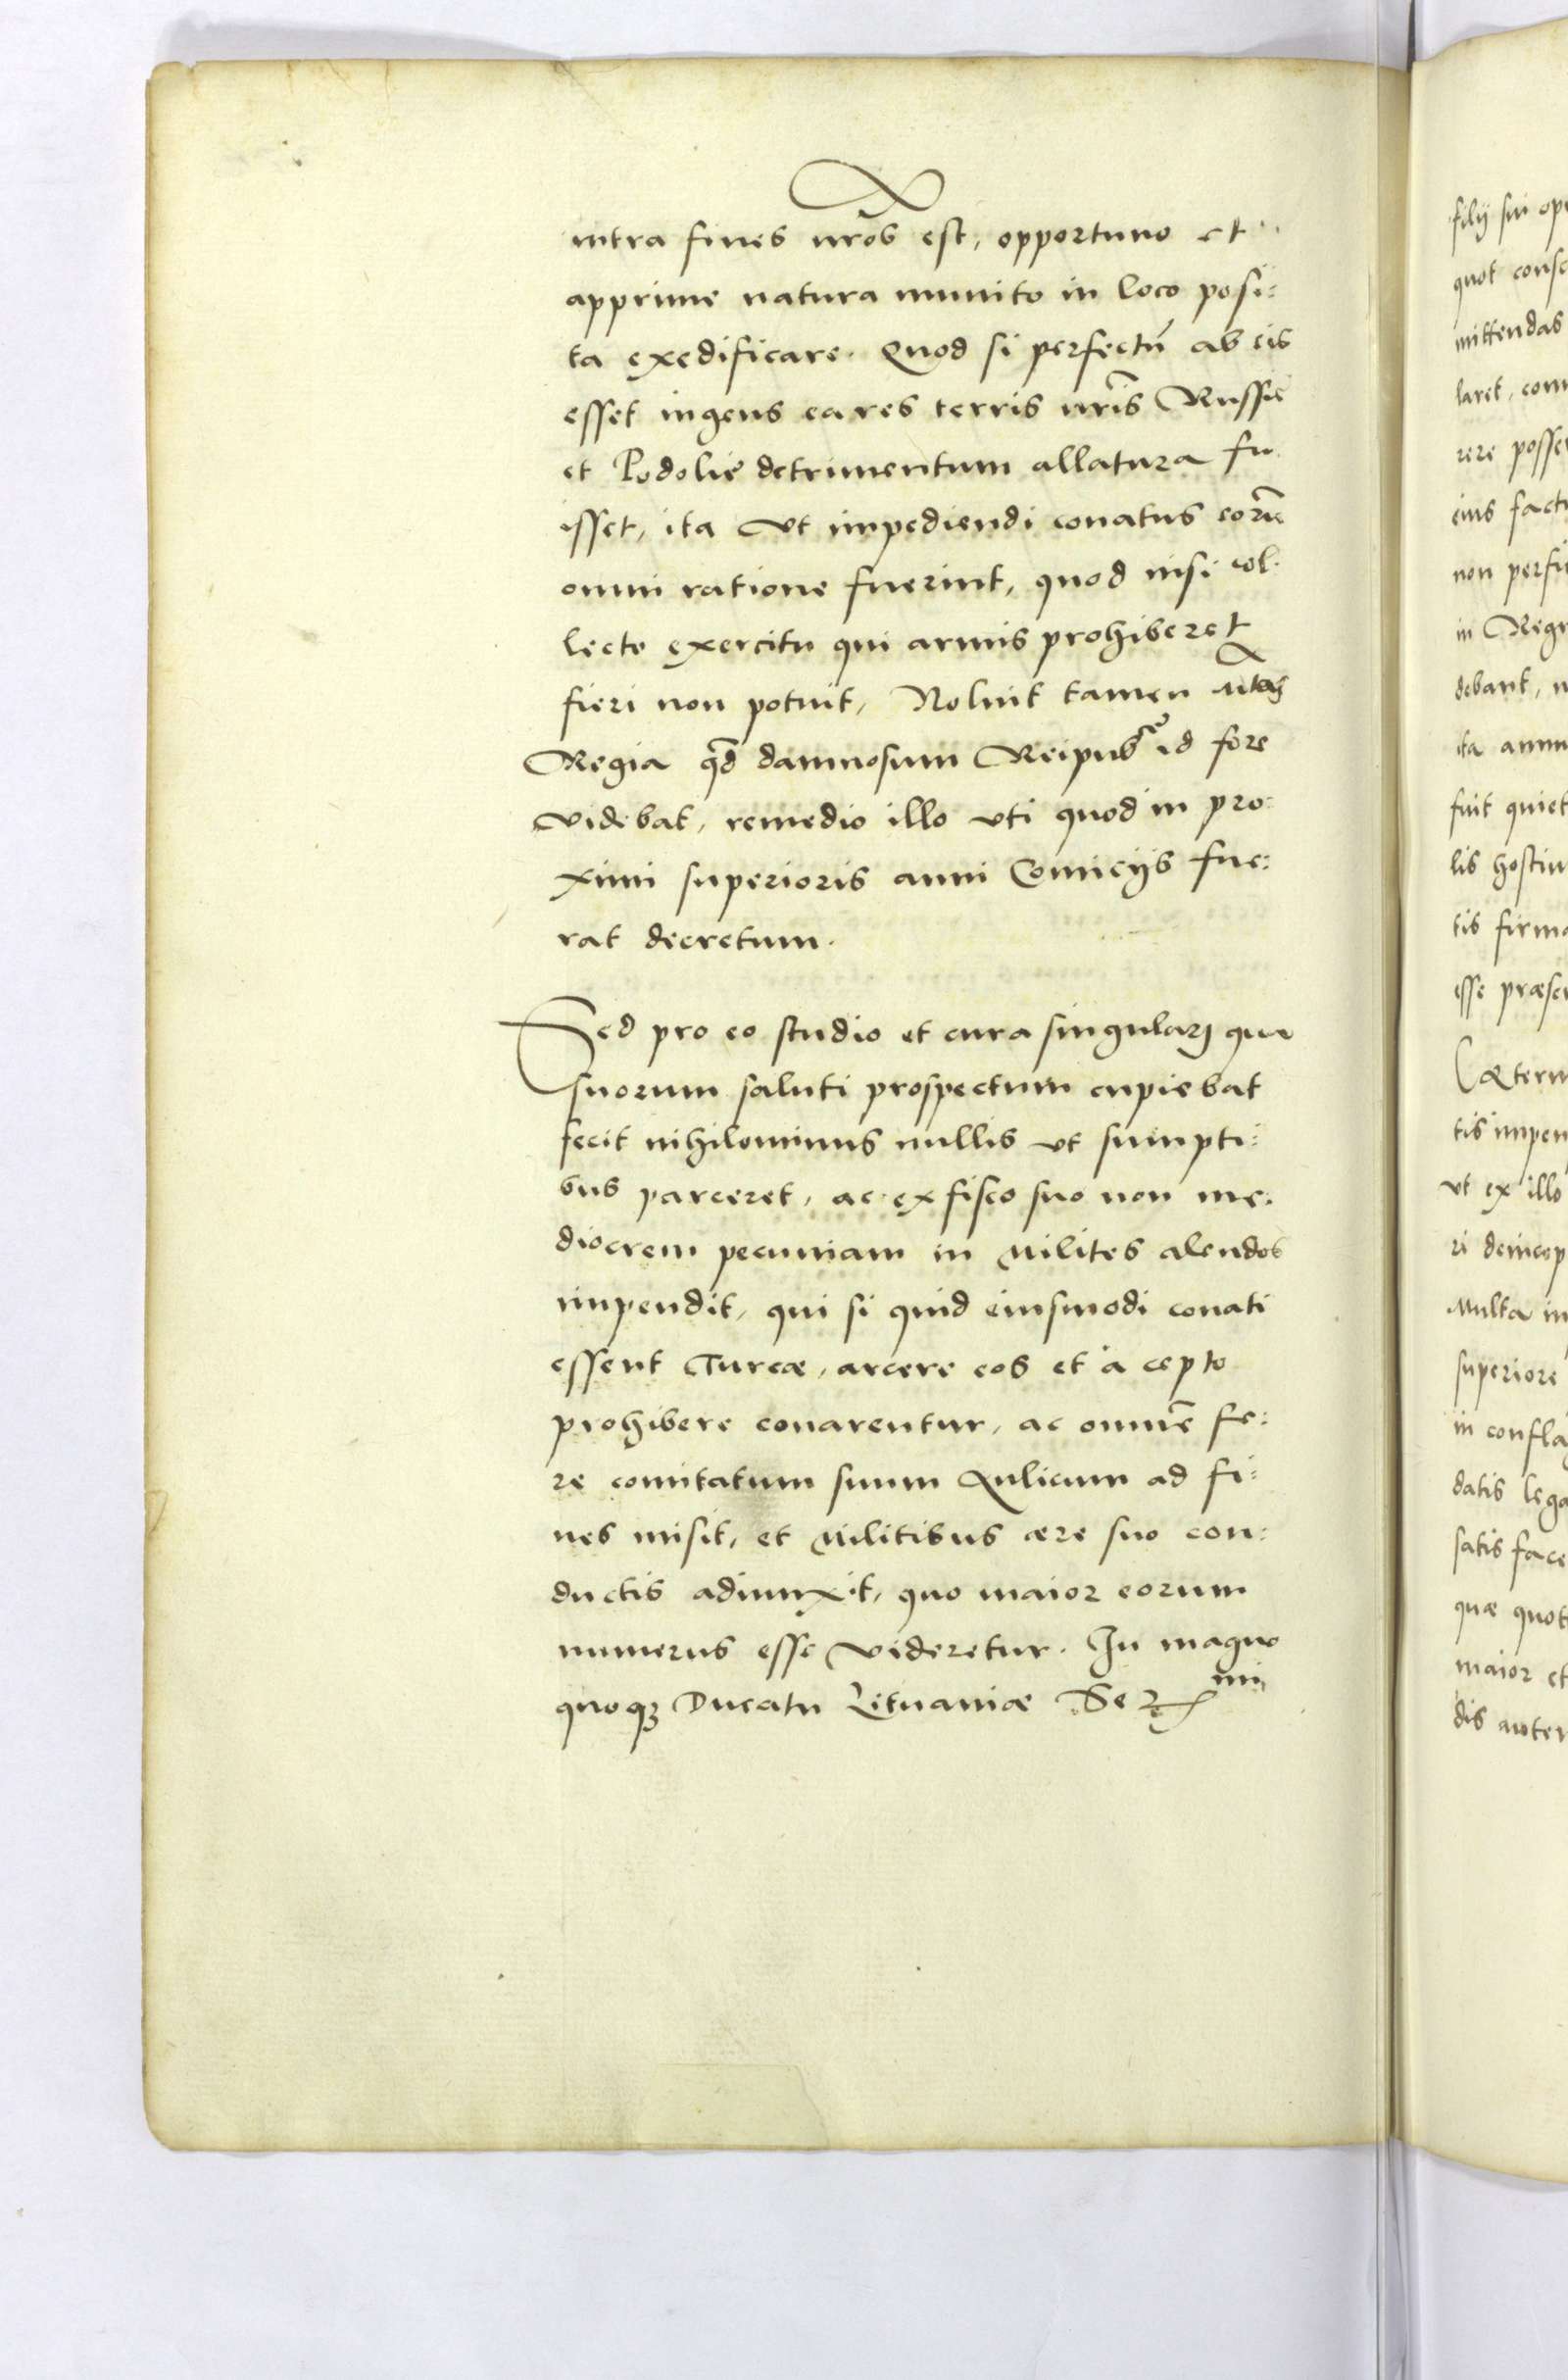 intra fines nr̃os est, opportuno et
apprime natura munito in loco posi:
ta exedificare. Quod si perfectũ ab eis
esset ingens ea res terris nr̃is Russię
et Podolię detrimentum allatura fu
isset, ita vt impediendi conatus eorũ
omni ratione fuerint, quod nisi col:
lecto exercitu qui armis prohiberet
fieri non potuit, Noluit tamen Mtas
Regia qd̃ damnosum Reipub id fore
videbat, remedio illo vti quod in pro:
ximi superioris anni Comicijs fue:
rat decretum.
Sed pro eo studio et cura singulari qua
suorum saluti prospectum cupiebat
fecit nihilominus nullis vt sumpti:
bus parceret, ac ex fisco suo non me:
diocrem pecuniam in Milites alendos
impendit, qui si quid eiusmodi conati
essent Turcæ, arcere eos et à cepto
prohibere conarentur, ac omnẽ fe:
re comitatum suum Aulicum ad fi:
nes misit, et Militibus ære suo con:
ductis adiunxit, quo maior eorum
numerus esse videretur. In magno
quoqȝ Ducatu Lituaniæ Ser mi
filij sui op
quot cons
mittendas
laret, com
rere posse
eius fact
non perfi
in Reg
debant,
ita anim
fuit quiet
lis hostiu
tis firma
esse præse
Cæteru
tis impen
vt ex illo
ri deincep
Multa in
superiore
in confla
datis lega
satis face
quæ quot
maior et
dis autem